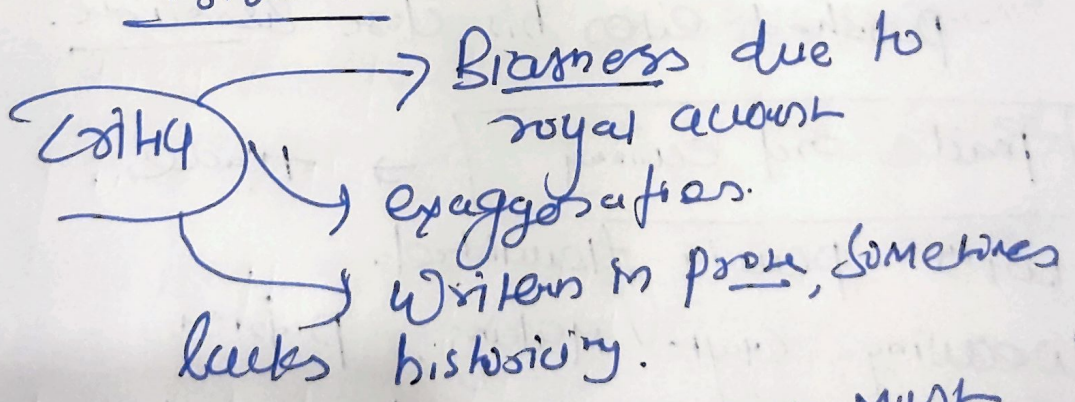 Biasness due to
royal account
exaggerations.
Written in prose, sometimes
lacks historicity.
must